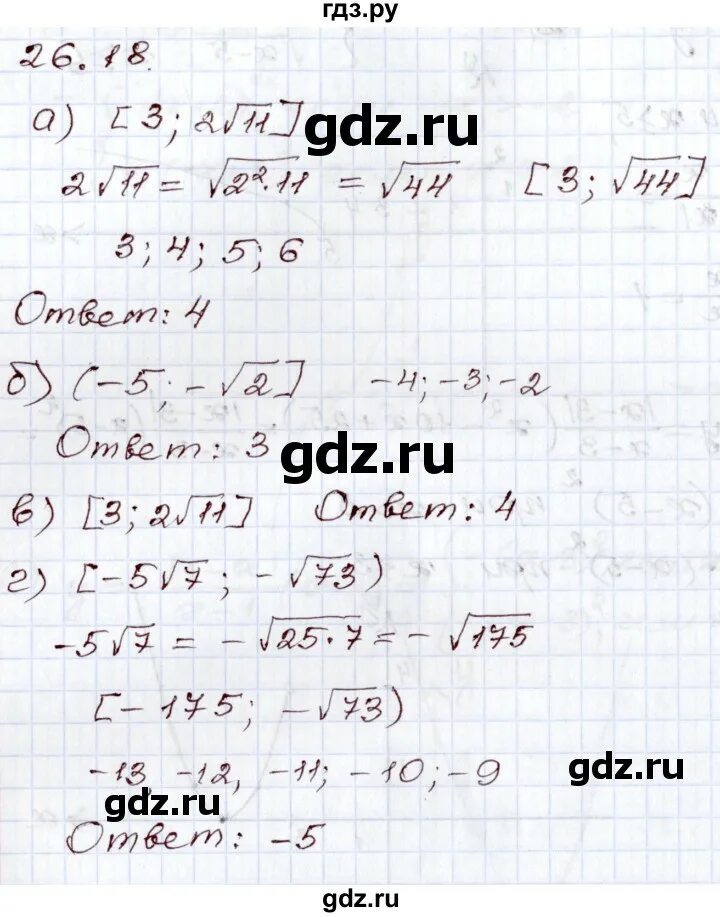 гдз.ру
26.18.
а) [3; 2√11]
gdz.ru
2√11 = √2²·11 = √44 [3; √44]
3; 4; 5; 6
Ответ: 4
б) (-5; -√2] -4; -3; -2
Ответ: 3
gdz.ru
в) [3; 2√11] Ответ: 4
г) [-5√7; -√73)
-5√7 = -√25·7 = -√175
[-175; -√73)
-13, -12, -11; -10; -9
gdz.ru
gdz.ru
Ответ: -5
gdz.ru